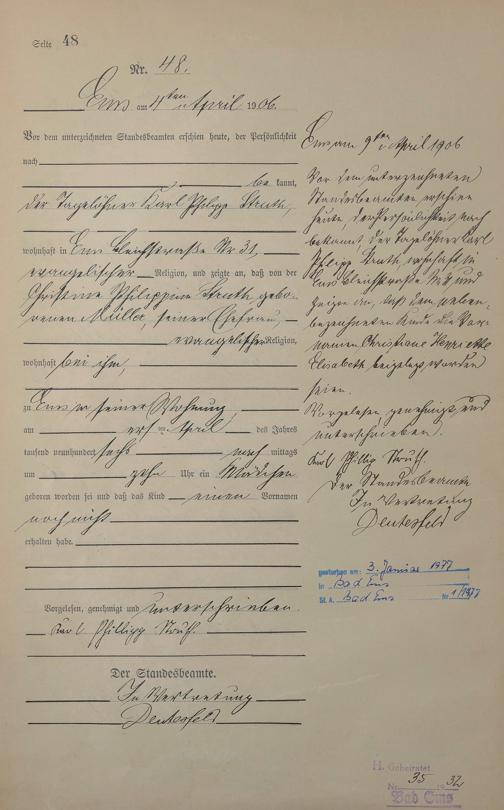 Seite 48
Nr. 48.
Ems am 4ten April 1906.
Vor dem unterzeichneten Standesbeamten erschien heute, der Persönlichkeit
nach
be kannt,
der Tagelöhner Karl Philipp Struth,
wohnhaft in Ems Bleichstraße Nr 31,
evangelischer Religion, und zeigte an, daß von der
Christine Philippine Struth gebo-
renen Müller, seiner Ehefrau,
evangelischer Religion,
wohnhaft bei ihm,
zu Ems in seiner Wohnung,
am ersten April des Jahres
tausend neunhundert sechs nach mittags
um zehn Uhr ein Mädchen
geboren worden sei und daß das Kind einen Vornamen
noch nicht
erhalten habe.
Vorgelesen, genehmigt und unterschrieben.
Karl Phillipp Struth.
Der Standesbeamte.
In Vertretung
Ems am 9ten April 1906
Vor dem unterzeichneten
Standesbeamten erschien
heute, der Persönlichkeit nach
bekannt, der Tagelöhner Karl
Philipp Struth, wohnhaft in
Ems Bleichstraße 31 und
zeigte an, daß dem neben-
bezeichneten Kinde die Vor-
namen Christiane Henriette
Elisabeth beigelegt worden
seien.
Vorgelesen, genehmigt und
unterschrieben.
Karl Phillip Struth.
Der Standesbeamte
In Vertretung
gestorben am: 3. Januar 1977
in Bad Ems
St. A. Bad Ems Nr 1/1977
H. Geheiratet
Nr. 35 1932
Bad Ems